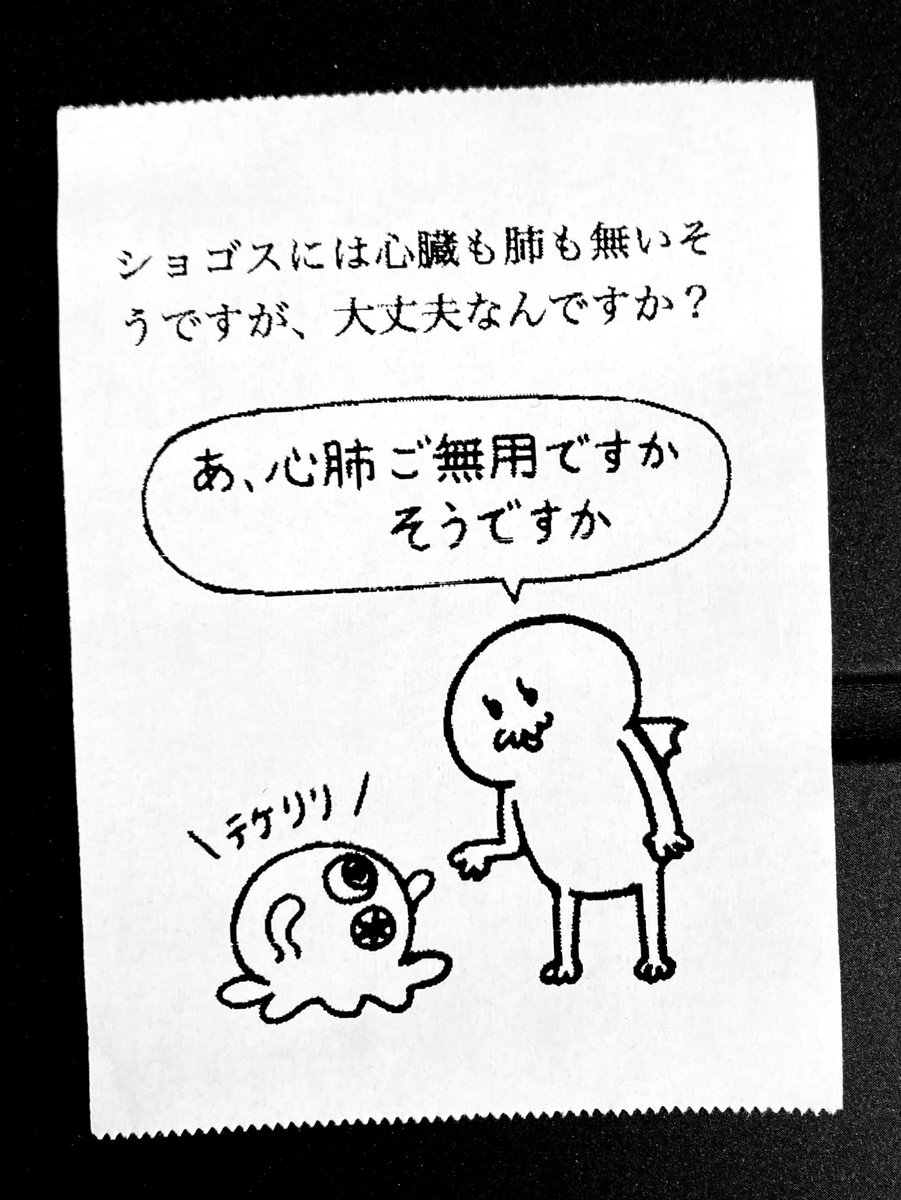 ショゴスには心臓も肺も無いそ
うですが、大丈夫なんですか？
あ、心肺ご無用ですか
そうですか
テケリリ